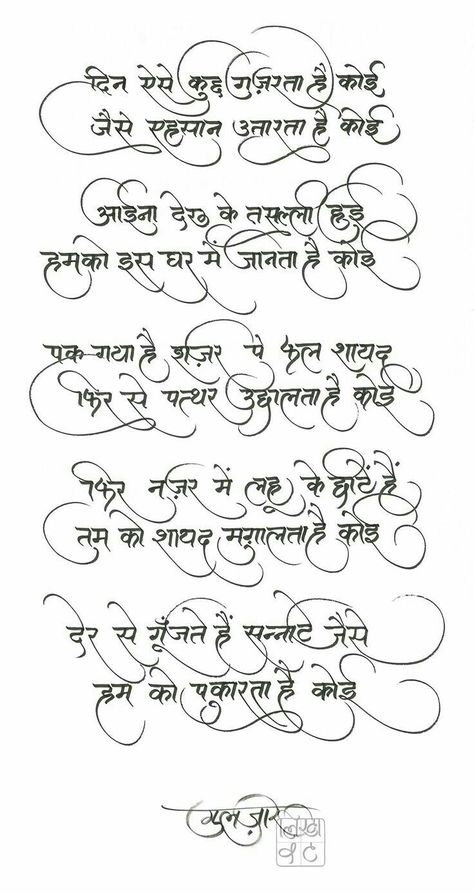 दिन ऐसे कुछ गुज़रता है कोई
जैसे एहसान उतारता है कोई
आईना देख के तसल्ली हुई
हमको इस घर में जानता है कोई
पक गया है शज़र पे फल शायद
फिर से पत्थर उछालता है कोई
फिर नज़र में लहू के छींटे हैं
तुम को शायद मुग़ालता है कोई
देर से गूँजते हैं सन्नाटे जैसे
हम को पुकारता है कोई
गुलज़ार